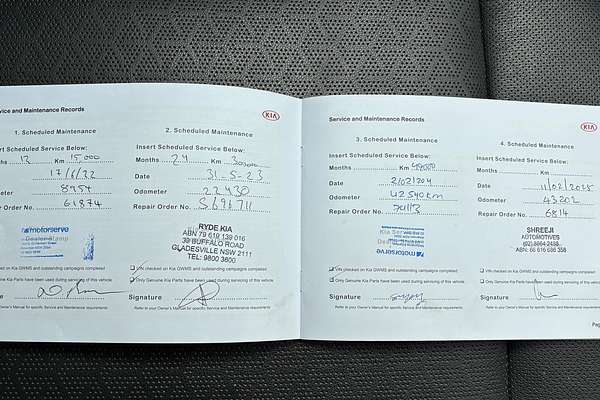 rvice and Maintenance Records
KIA
1. Scheduled Maintenance
Insert Scheduled Service Below:
hs 12 Km 15,000
17/6/22
meter 8954
r Order No. 61874
motorserve
VIN checked on Kia GWMS and outstanding campaigns completed
Genuine Kia Parts have been used during servicing of this vehicle
Refer to your Owner's Manual for specific Service and Maintenance requirements
2. Scheduled Maintenance
Insert Scheduled Service Below:
Months 24 Km 30,000
Date 31-5-23
Odometer 22430
Repair Order No. S696711
RYDE KIA
ABN 79 619 139 016
39 BUFFALO ROAD
GLADESVILLE NSW 2111
TEL: 9800 3800
VIN checked on Kia GWMS and outstanding campaigns completed
Only Genuine Kia Parts have been used during servicing of this vehicle
Signature
Refer to your Owner's Manual for specific Service and Maintenance requirements
Service and Maintenance Records
KIA
3. Scheduled Maintenance
Insert Scheduled Service Below:
Months Km
Date
Odometer 42540km
Repair Order No.
Kia
motorserve
VIN checked on Kia GWMS and outstanding campaigns completed
Only Genuine Kia Parts have been used during servicing of this vehicle
Signature
Refer to your Owner's Manual for specific Service and Maintenance requirements
4. Scheduled Maintenance
Insert Scheduled Service Below:
Months Km
Date 11/02/2025
Odometer 43202
Repair Order No. 6814
SHREEJI
AUTOMOTIVES
VIN checked on Kia GWMS and outstanding campaigns completed
Only Genuine Kia Parts have been used during servicing of this vehicle
Signature
Refer to your Owner's Manual for specific Service and Maintenance requirements